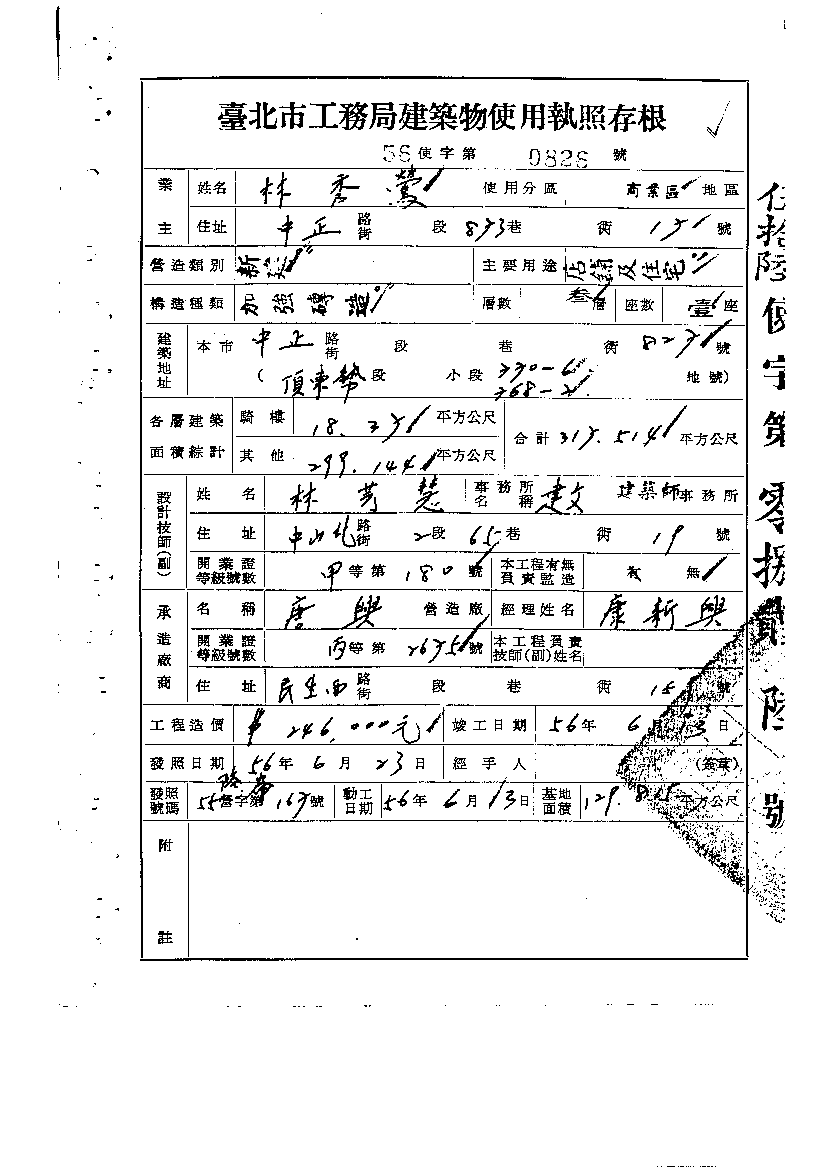 臺北市工務局建築物使用執照存根
56使字第 0826 號
業主 姓名 林秀鶯 使用分區 商業區地區
住址 中正路街 段 巷 衖 號
營造類別 新建 主要用途 店鋪及住宅
構造種類 加強磚造 層數 叁層 座數 壹座
建築地址 本市 中正路街 段 巷 衖 號
(頂東勢段 小段 330-6 368-2 地號)
各層建築面積綜計 騎樓 18. 平方公尺 合計 平方公尺
其他 299.144 平方公尺
設計技師(副) 姓名 林芳慧 事務所名稱 建文建築師事務所
住址 中山北路街 2段 65巷 衖 19號
開業證等級號數 甲等第180號 本工程有無負責監造 有 無
承造廠商 名稱 唐興營造廠 經理姓名 康新興
開業證等級號數 丙等第 號 本工程負責技師(副)姓名
住址 民生西路街 段 巷 衖 號
工程造價 $246,000元 竣工日期 56年6月13日
發照日期 56年6月23日 經手人 (簽章)
發照號碼 55營字第 號 動工日期 56年6月13日 基地面積 129. 平方公尺
附註
伍拾陸使字第零捌貳陸號